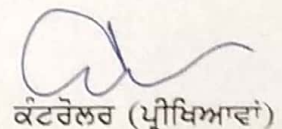 ਕੰਟਰੋਲਰ (ਪ੍ਰੀਖਿਆਵਾਂ)